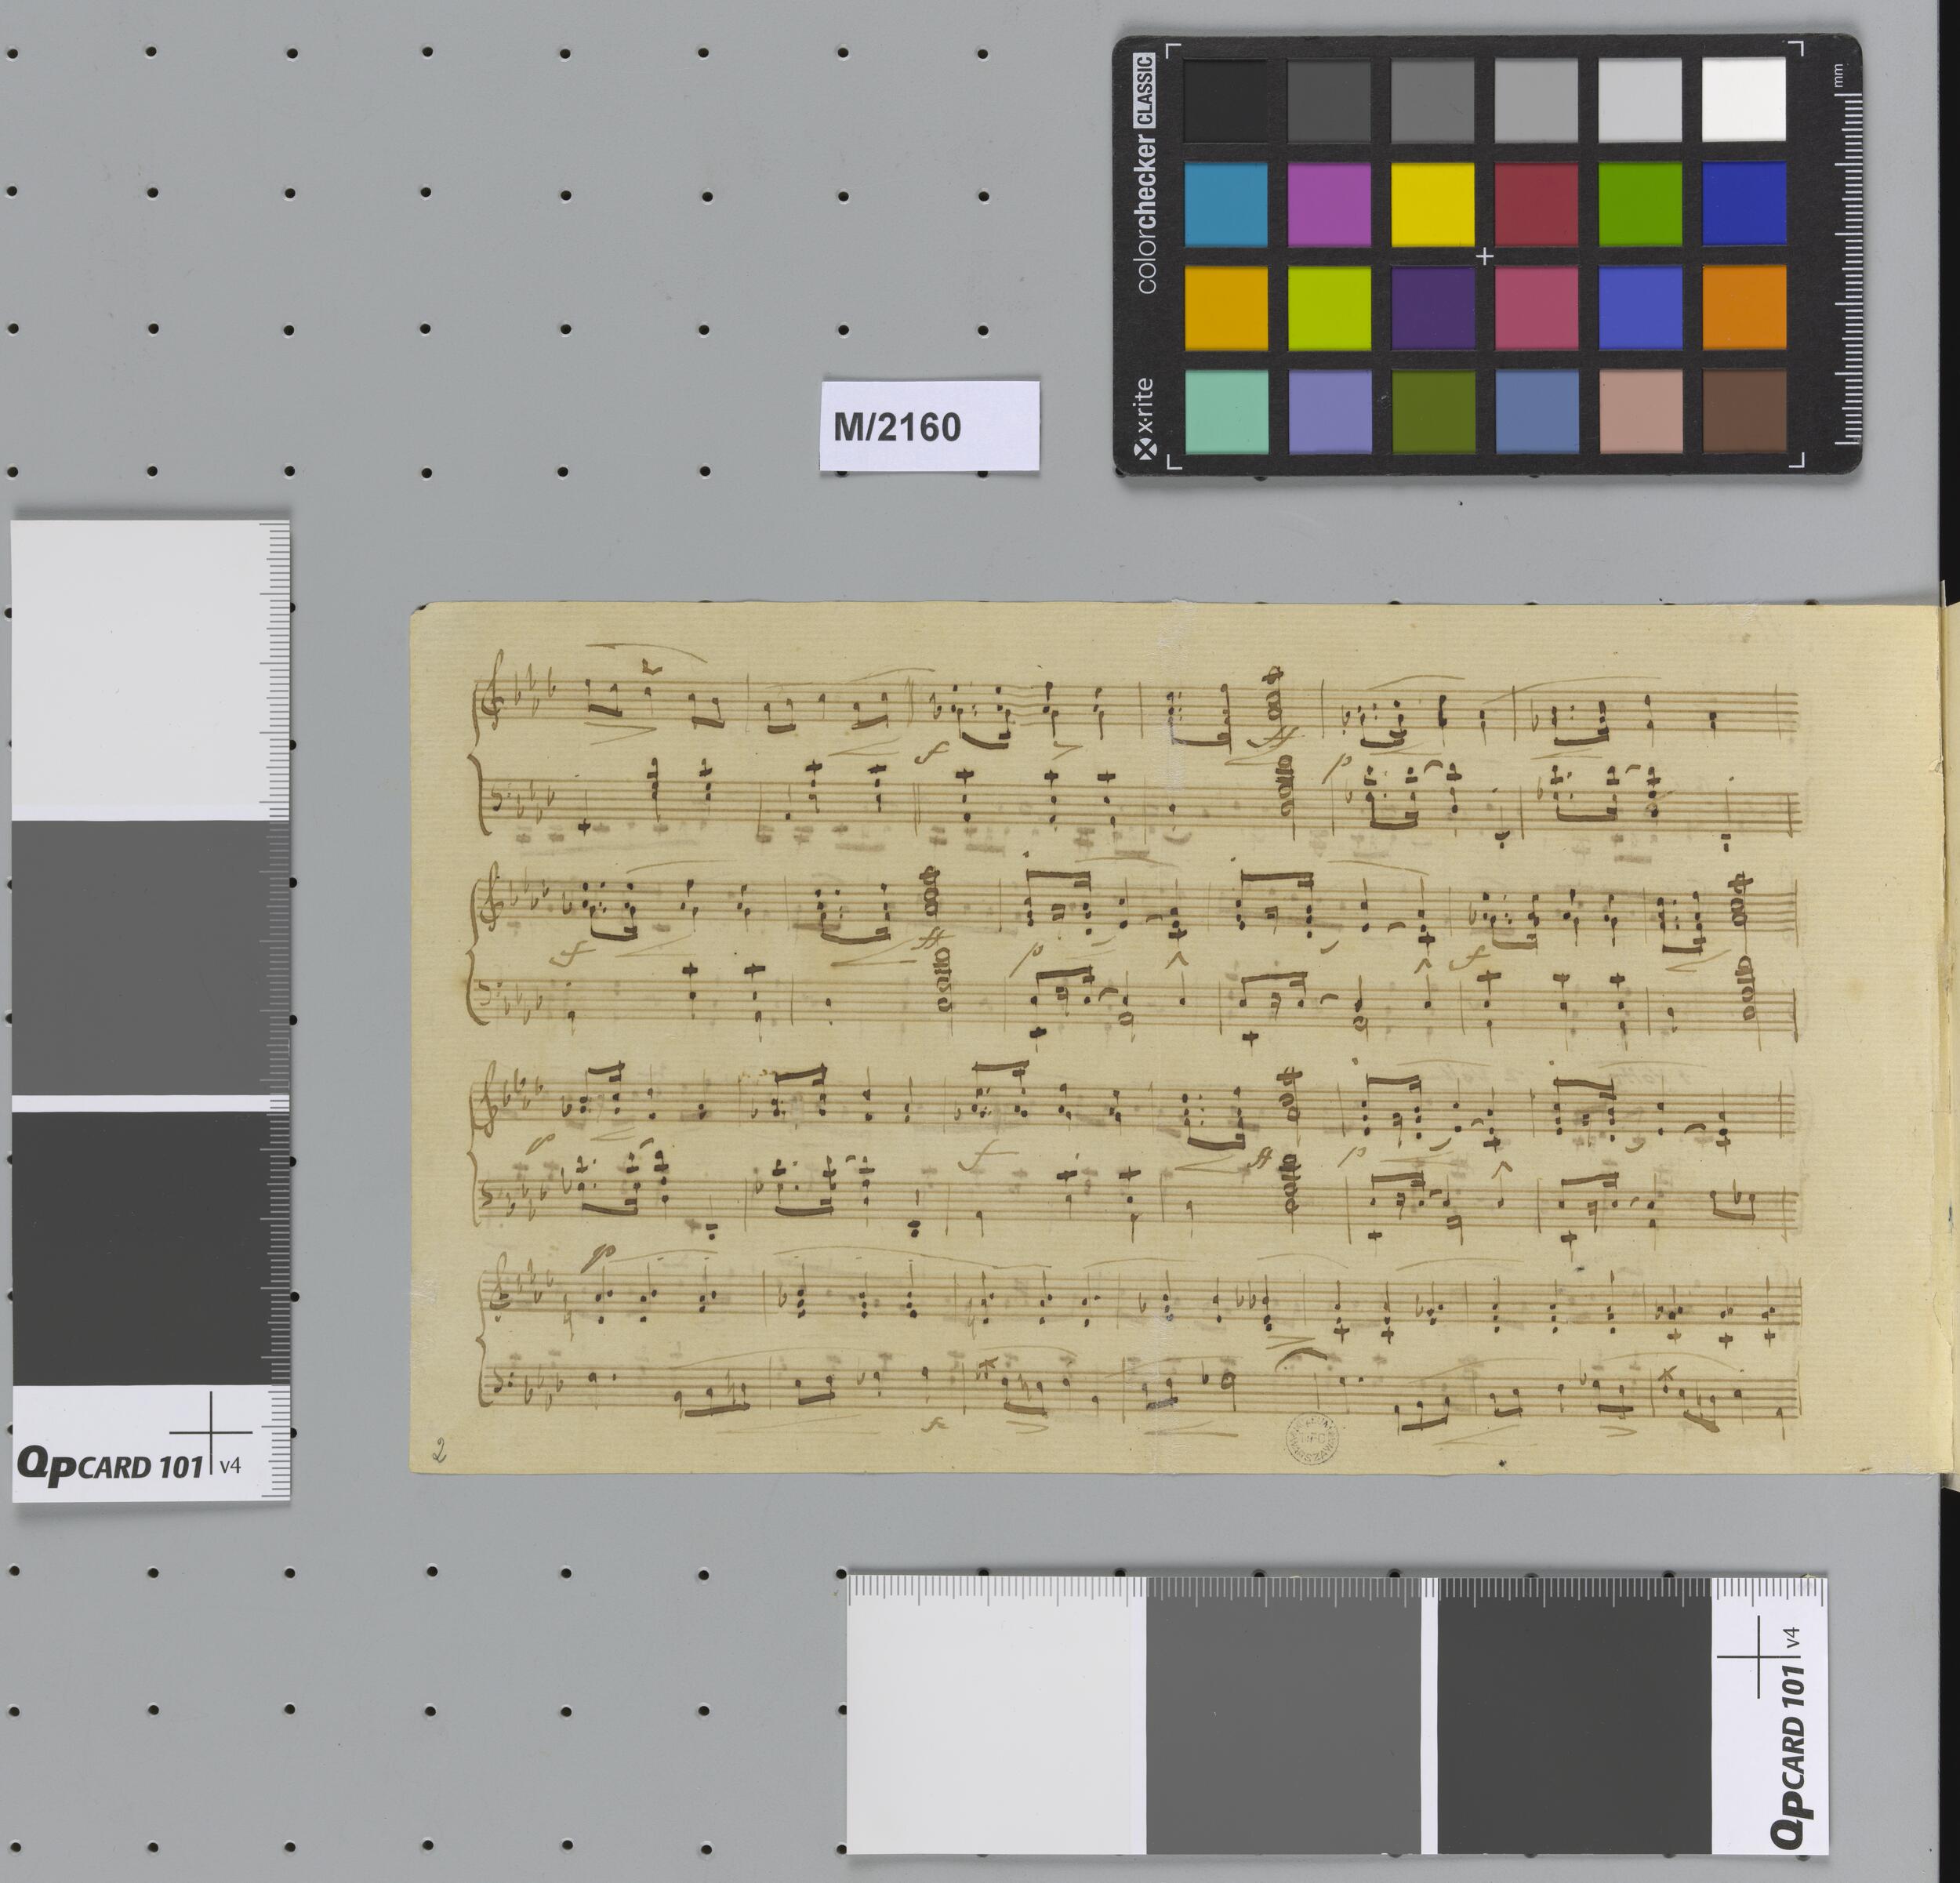 colorchecker CLASSIC
x·rite
mm
M/2160
QPCARD 101 v4
f
ff
p
f
ff
p
f
p
f
ff
p
p
2
QPCARD 101 v4